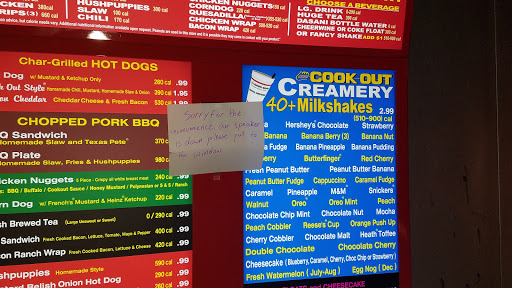 KEN NUGGETS(5)
STRIPS(3) 660 cal
HUSHPUPPIES
SLAW 100 cal
CHILI 170 cal
CORNDOG
QUESADILLA
CHICKEN WRAP
BACON WRAP
CHOOSE A BEVERAGE
LG. DRINK
HUGE TEA
DASANI BOTTLE WATER
CHEERWINE OR COKE FLOAT
OR FANCY SHAKE ADD $1
Char-Grilled HOT DOGS
Dog w/ Mustard & Ketchup Only 280 cal .99
Out Style Homemade Chili, Mustard, Homemade Slaw & Onion 390 cal .99
Cheddar Cheddar Cheese & Fresh Bacon 530 cal .99
CHOPPED PORK BBQ
Q Sandwich
Homemade Slaw and Texas Pete 370 cal
Q Plate
Homemade Slaw, Fries & Hushpuppies 980 cal
cken Nuggets 5 Piece - Crispy all white breast meat 240 cal
BBQ / Buffalo / Cookout Sauce / Honey Mustard / Polynesian or S & S / Ranch
rn Dog w/ French's Mustard & Heinz Ketchup 220 cal
sh Brewed Tea (Large Unsweet or Sweet) 0 / 290 cal .99
Sandwich Fresh Cooked Bacon, Lettuce, Tomato, Mayo & Pepper 400 cal .99
on Ranch Wrap Fresh Cooked Bacon, Lettuce & Cheese 420 cal .99
shpuppies Homemade Style .99
stard Relish Onion Hot Dog .99
Sorry for the
inconvenience our speaker
is down please pull to
the window
COOK OUT
CREAMERY
40+ Milkshakes 2.99
(510-900) cal
Hershey's Chocolate Strawberry
Banana Banana Berry (3) Banana Nut
Banana Fudge Banana Pineapple Banana Pudding
Berry Butterfinger Red Cherry
Fresh Peanut Butter Peanut Butter Banana
Peanut Butter Fudge Cappuccino Caramel Fudge
Caramel Pineapple M&M Snickers
Walnut Oreo Oreo Mint Peach
Chocolate Chip Mint Chocolate Nut Mocha
Peach Cobbler Reese's Cup Orange Push Up
Cherry Cobbler Chocolate Malt Heath Toffee
Double Chocolate Chocolate Cherry
Cheesecake (Blueberry, Caramel, Cherry, Choc Chip or Strawberry)
Fresh Watermelon (July-Aug) Egg Nog (Dec)
and CHEESECAKE